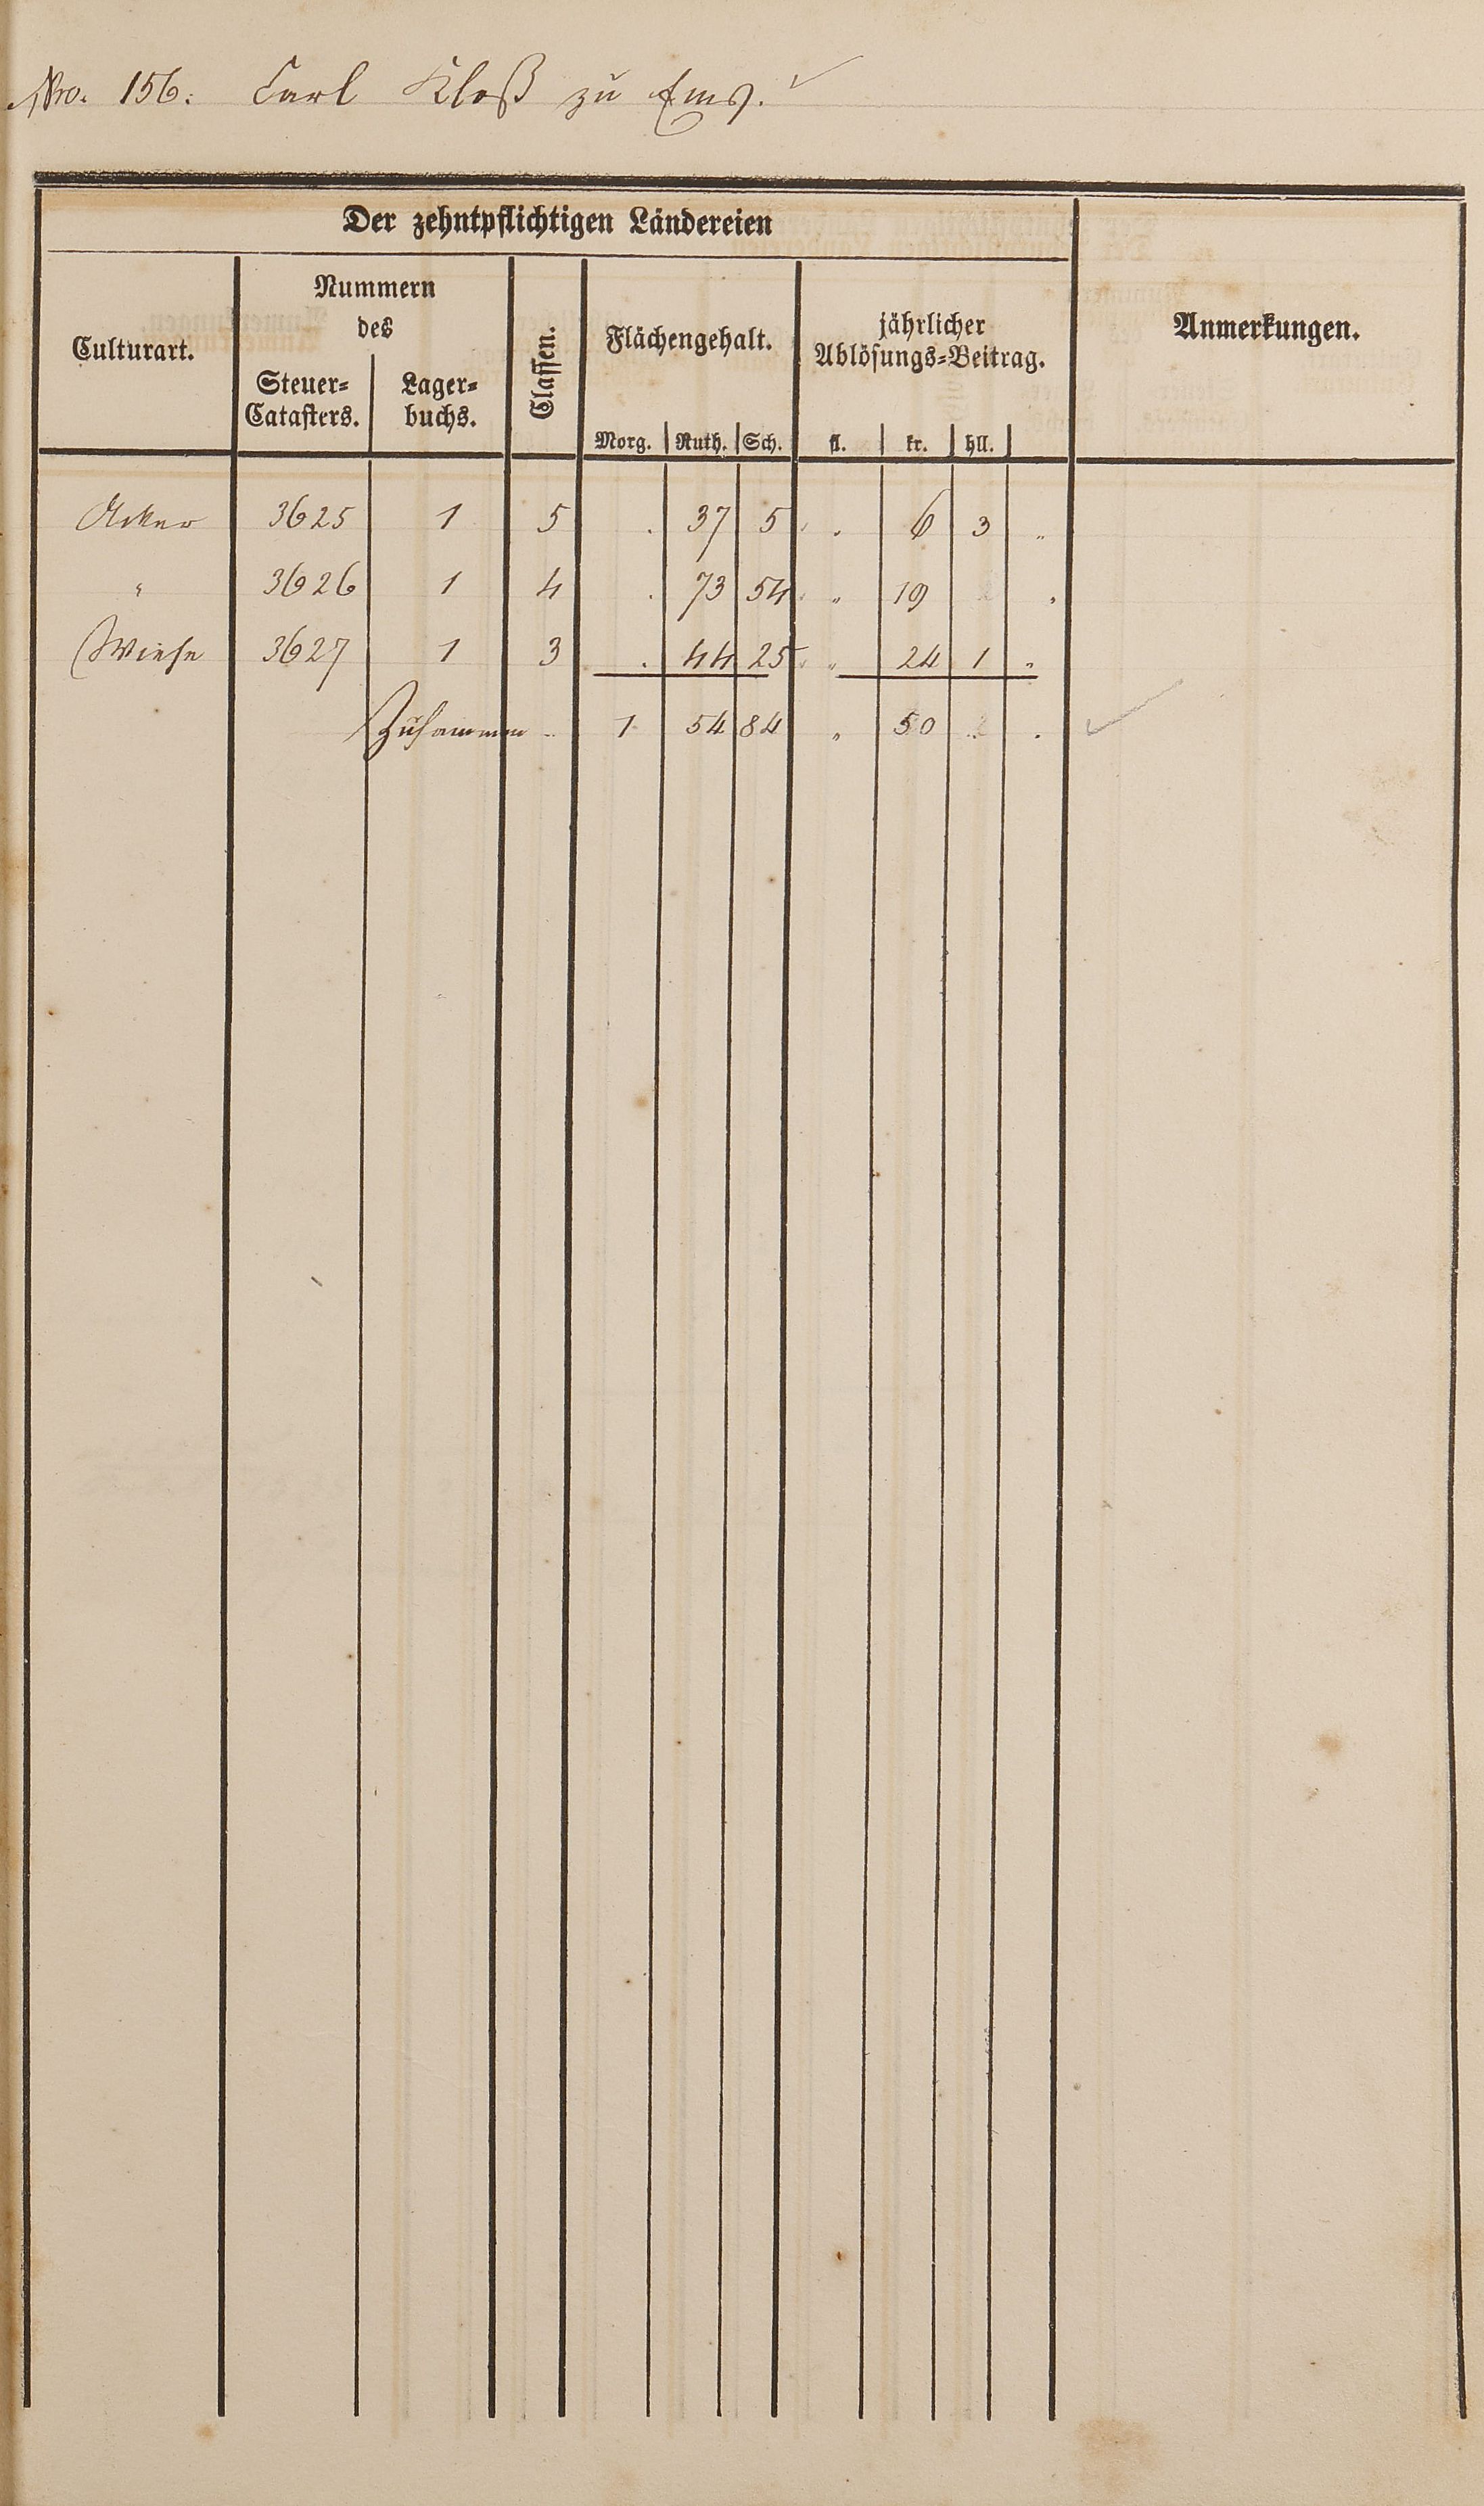 Nro. 156. Carl Kloß zu Ems.
Der zehntpflichtigen Ländereien
Culturart.
Nummern
des
Steuer=
Catasters.
Lager=
buchs.
Classen.
Flächengehalt.
Morg. Ruth. Sch.
jährlicher
Ablösungs=Beitrag.
fl. kr. hll.
Anmerkungen.
Acker 3625 1 5 . 37 5 . 6 3 "
" 3626 1 4 . 73 54 " 19 "
Wiese 3627 1 3 . 44 25 " 24 1 "
Zusammen 1 54 84 " 50 . .